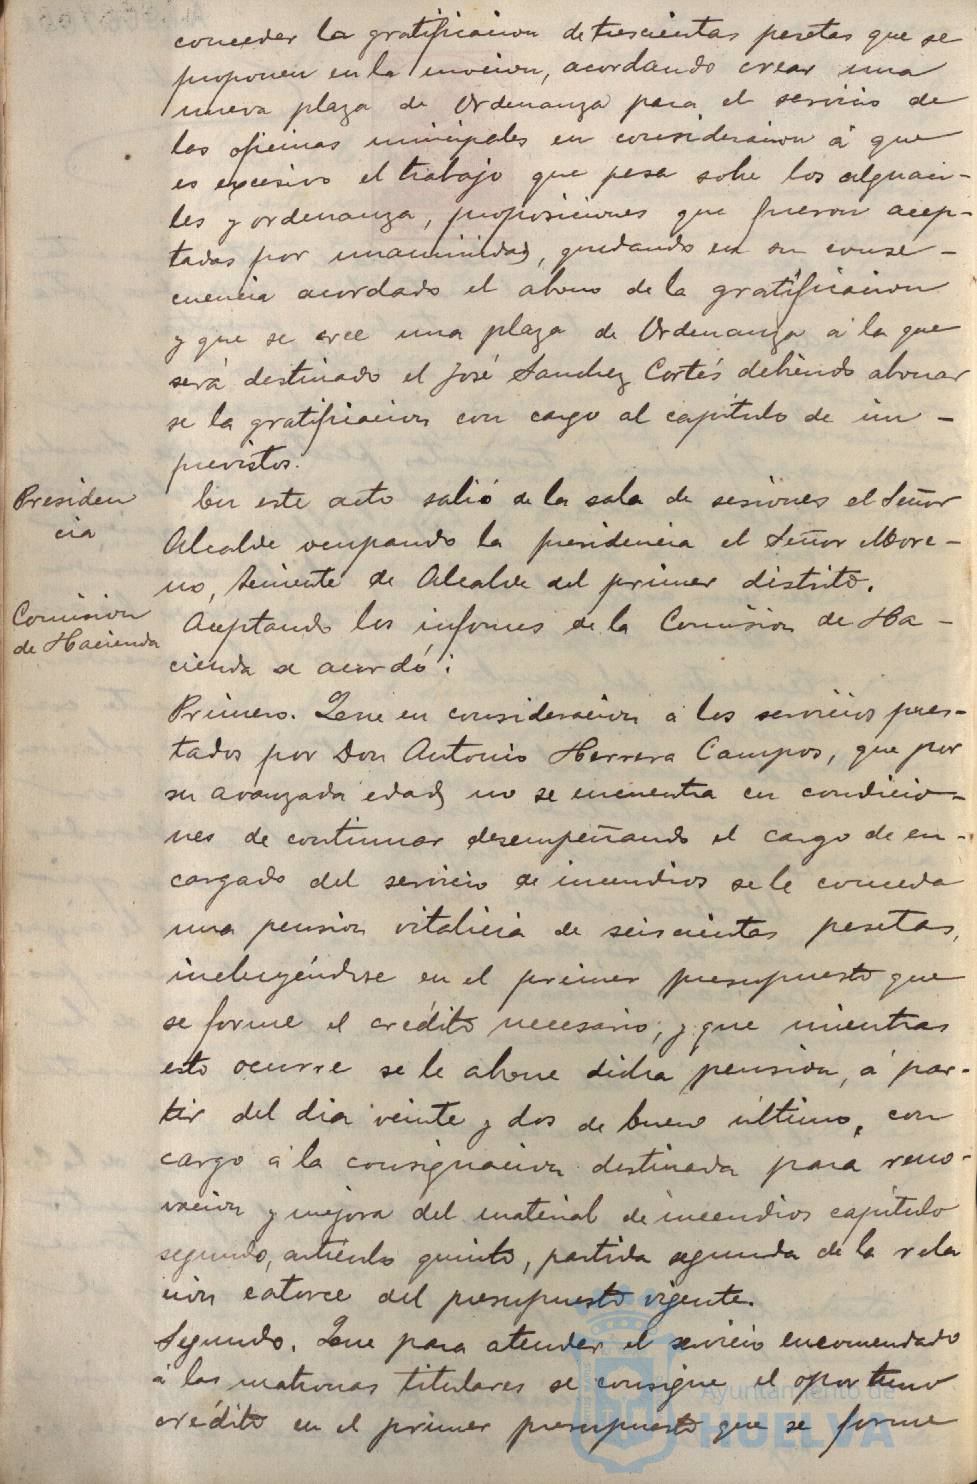 conceder la gratificacion de trescientas pesetas que se
proponen en la mocion, acordando crear una
nueva plaza de Ordenanza para el servicio de
las oficinas municipales en consideracion á que
es excesivo el trabajo que pesa sobre los alguaci-
les y ordenanza, proposiciones que fueron acep-
tadas por unanimidad, quedando en su conse-
cuencia acordado el abono de la gratificacion
y que se cree una plaza de Ordenanza á la que
será destinado el José Sanchez Cortés debiendo abonar
se la gratificacion con cargo al capítulo de im-
previstos.
Presiden
cia
En este acto salió de la sala de sesiones el Señor
Alcalde ocupando la presidencia el Señor More-
no, teniente de Alcalde del primer distrito.
Comision
de Hacienda
Aceptando los informes de la Comision de Ha-
cienda se acordó:
Primero. Que en consideracion á los servicios pres-
tados por Don Antonio Herrera Campos, que por
su avanzada edad no se encuentra en condicio-
nes de continuar desempeñando el cargo de en-
cargado del servicio de incendios se le conceda
una pension vitalicia de seiscientas pesetas,
incluyéndose en el primer presupuesto que
se forme el crédito necesario, y que mientras
esto ocurre se le abone dicha pension, á par-
tir del dia veinte y dos de Enero último, con
cargo á la consignacion destinada para reno-
vacion y mejora del material de incendios capítulo
segundo, artículo quinto, partida segunda de la rela
cion catorce del presupuesto vigente.
Segundo. Que para atender el servicio encomendado
á las matronas titulares se consigne el oportuno
crédito en el primer presupuesto que se forme
Ayuntamiento de
HUELVA